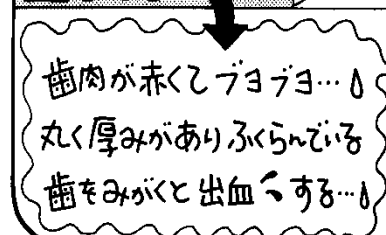 歯肉が赤くてブヨブヨ…
丸く厚みがありふくらんでいる
歯をみがくと出血する…